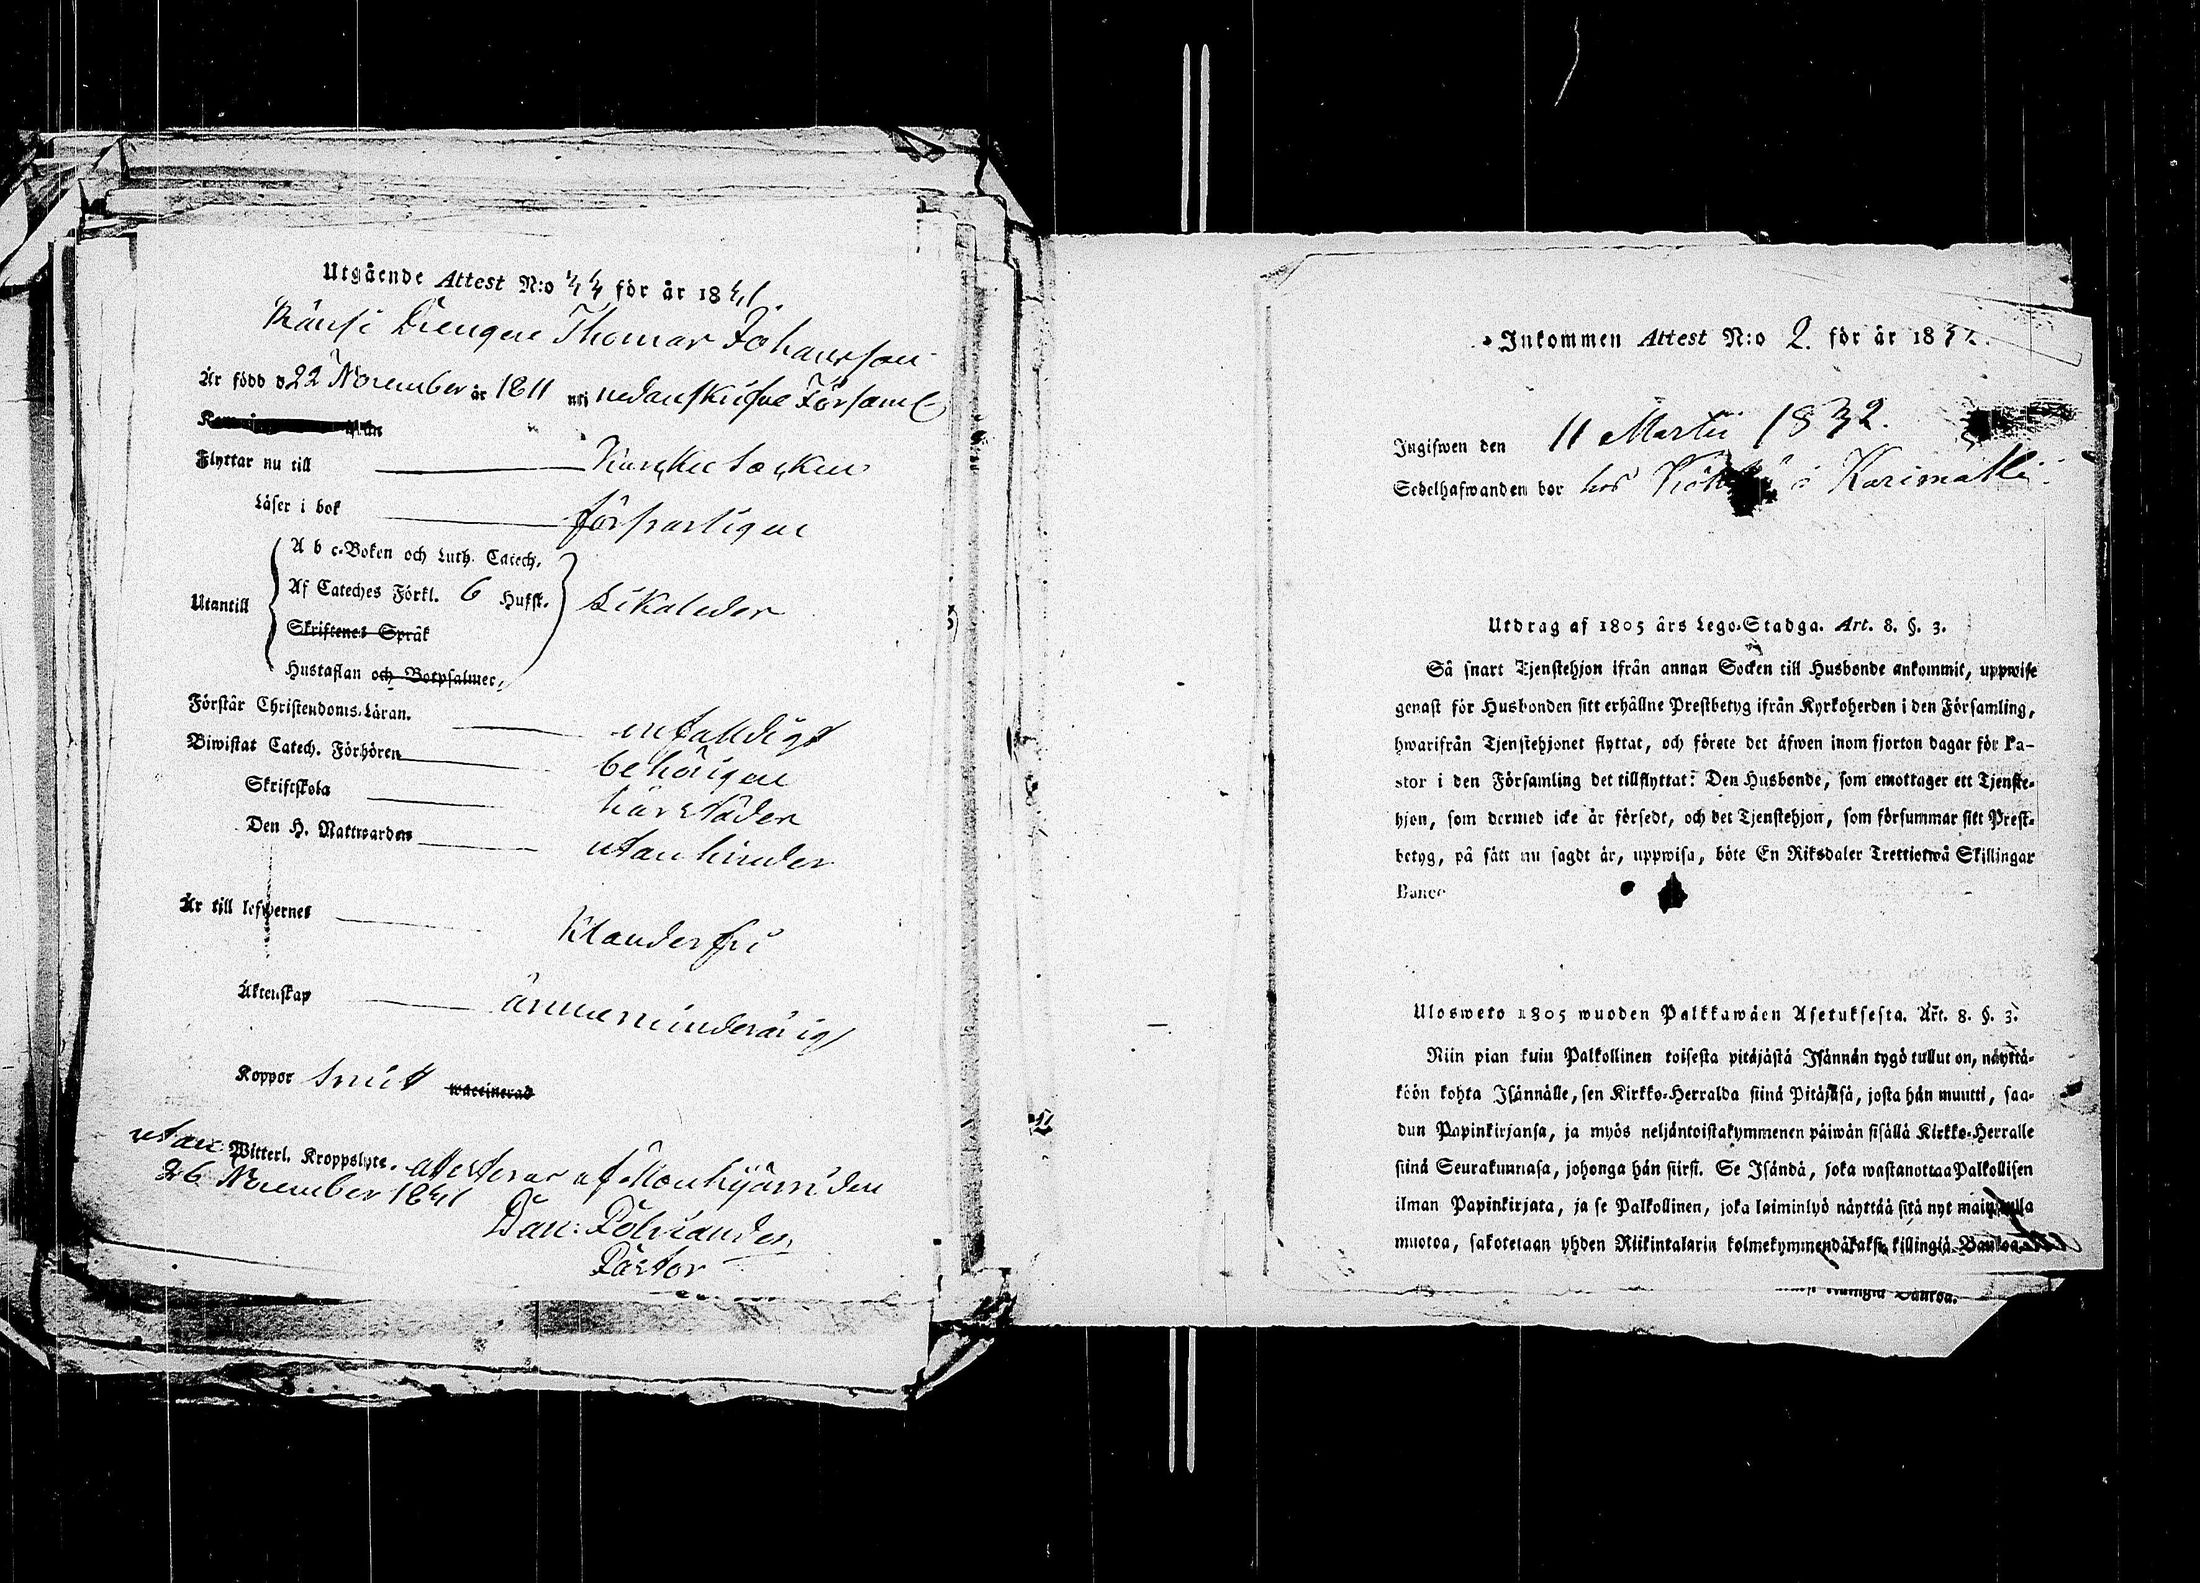 Utgående Attest N:o 44 för år 1841.
Ränsi Drengen Thomas Johansson
Är född d 22 November år 1811 uti nedanskrifne Församl
Flyttar nu till Karkku Socken
Läser i bok försvarligen
A b c-Boken och Luth. Catech.
Utantill Af Cateches Förkl. 6 Hufst. likaledes
Skriftenes Språk
Hustaflan och Botpsalmer,
Förstår Christendoms-Läran. enfaldigt
Biwistat Catech. Förhören behörigen
Skriftskola härstädes
Den H. Nattwarden utan hinder
Är till lefwernet Klanderfri
Äktenskap ännu minderårig
Koppor waccinerad
utan Witterl. Kroppslyte. attesterar af Mouhijärvi den
26 November 1841
Dan: Polviander
Pastor
Inkommen Attest N:o 2. för år 1832.
Ingifwen den 11 Martii 1832.
Sedelhafwanden bor hos i Karimäki
Utdrag af 1805 års Lego-Stadga. Art. 8. §. 3.
Så snart Tjenstehjon ifrån annan Socken till Husbonde ankommit, uppwise
genast för Husbonden sitt erhållne Prestbetyg ifrån Kyrkoherden i den Församling,
hwarifrån Tjenstehjonet flyttat, och förete det äfwen inom fjorton dagar för Pa-
stor i den Församling det tillflyttat: Den Husbonde, som emottager ett Tjenste-
hjon, som dermed icke är försedt, och det Tjenstehjon, som försummar sitt Prest-
betyg, på sätt nu sagdt är, uppwisa, böte En Riksdaler Trettiotwå Skillingar
Banco
Ulosweto 1805 wuoden Palkkawäen Asetuksesta. Art. 8. §. 3.
Niin pian kuin Palkollinen toisesta pitäjästä Isännän tygö tullut on, näyttä-
köön kohta Isännälle, sen Kirkko-Herralda siinä Pitäjäsä, josta hän muutti, saa-
dun Papinkirjansa, ja myös neljäntoistakymmenen päiwän sisällä Kirkko-Herralle
siinä Seurakunnasa, johonga hän siirsi. Se Isändä, joka wastanottaa Palkollisen
ilman Papinkirjata, ja se Palkollinen, joka laiminlyö näyttää sitä nyt mainitulla
muotoa, sakotetaan yhden Riikintalarin kolmekymmendäkaksi killingiä Bankoa.
killingiä Bankoa.